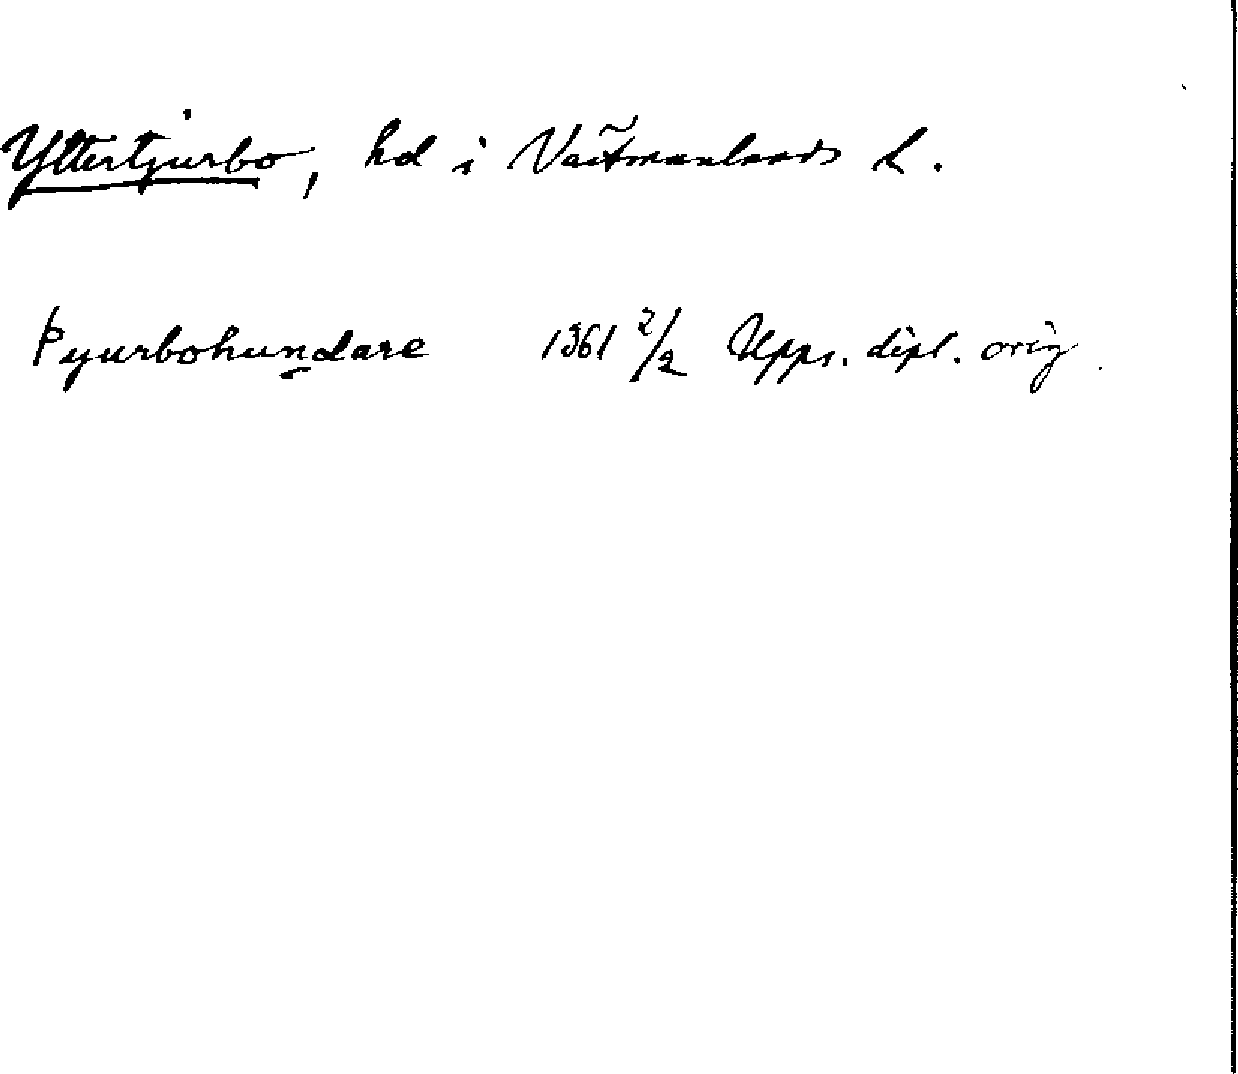 Yttertjurbo, hd i Västmanlands l.
Þyurbohundare 1361 2/2 Upps. dipl. orig.